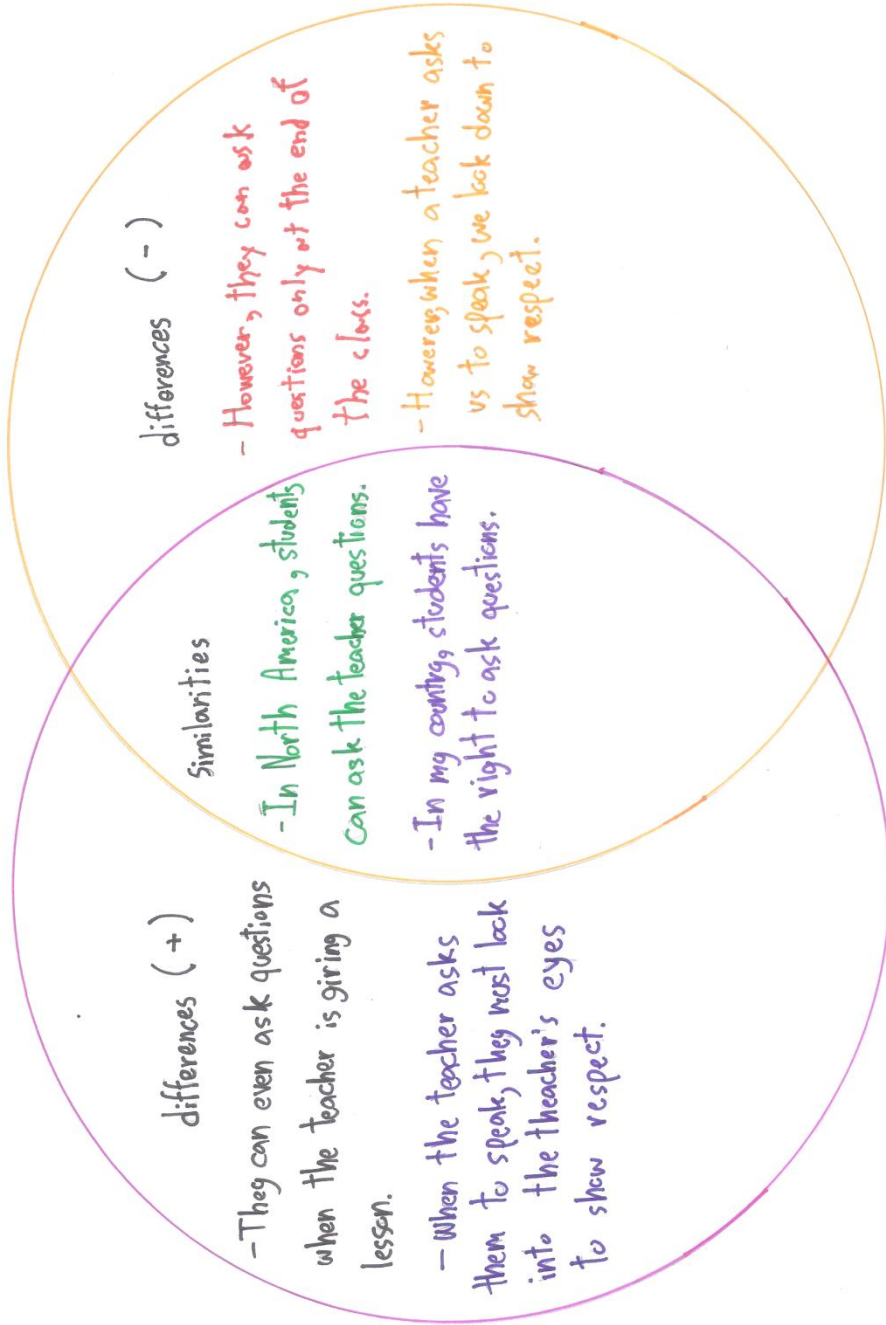 differences (+)
- They can even ask questions
when the teacher is giving a
lesson.
- When the teacher asks
them to speak, they must look
into the theacher's eyes
to show respect.
Similarities
- In North America, students
can ask the teacher questions.
- In my country, students have
the right to ask questions.
differences (-)
- However, they can ask
questions only at the end of
the class.
- However, when a teacher asks
us to speak, we look down to
show respect.